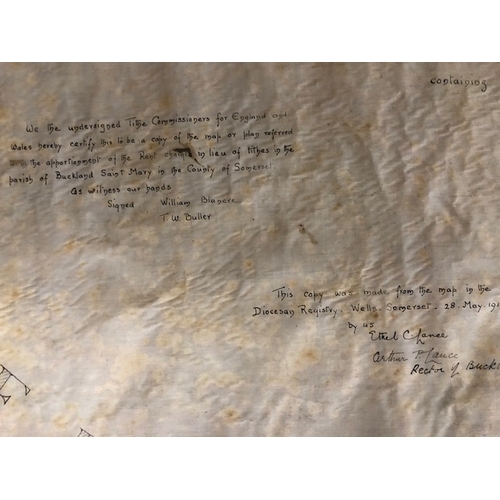 containing
We the undersigned Tithe Commissioners for England and
Wales hereby certify this to be a copy of the map or plan referred
the apportionment of the Rent charge in lieu of tithes in the
parish of Buckland Saint Mary in the County of Somerset.
As witness our hands
Signed William Blamire
T. W. Buller
This copy was made from the map in the
Diocesan Registry. Wells. Somerset. 28. May. 19
by us
Ethel C Lance
Arthur P. Lance
Rector of Buckl